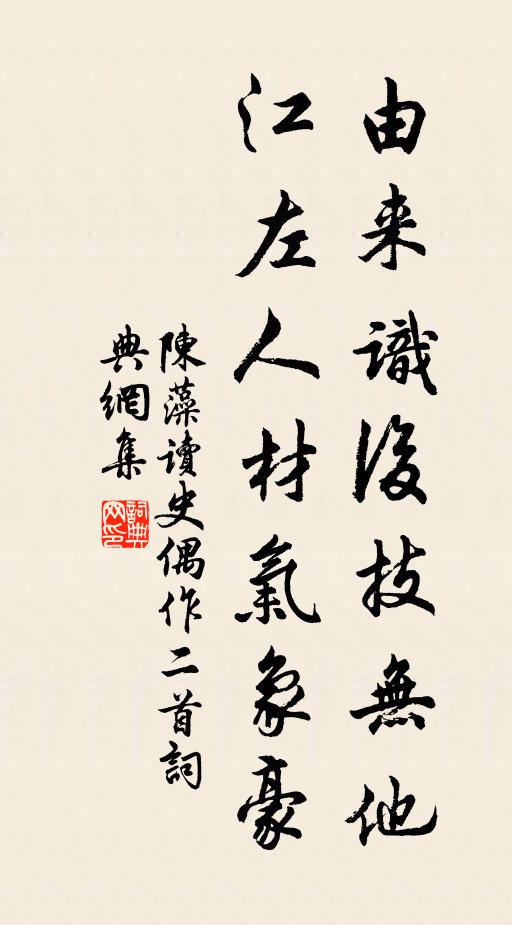 由来識後技無他
江左人材氣象豪
陳藻讀史偶作二首詞
典網集
詞典网印